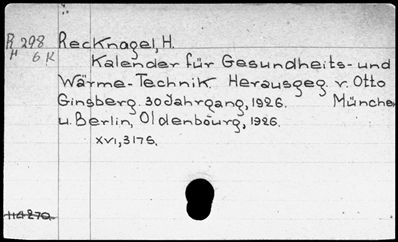 R 298 Recknagel, H.
H 6 K Kalender für Gesundheits- und
Wärme-Technik. Herausgeg. v. Otto
Ginsberg. 30 Jahrgang, 1926. München
u. Berlin, Oldenbourg, 1926.
XVI, 317 S.
114270